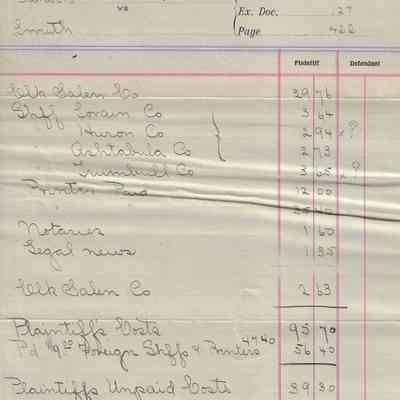 vs
Ex. Doc. 27
Smith
Page 422
Plaintiff Defendant
Clk Galen Co 29 76
Shff Lorain Co 3 64
Huron Co 2 94 x ?
Ashtabula Co 2 73
Trumbull Co 3 65 x ?
Printer Paid 12 00
35 40
Notaries 1 60
Legal news 1 35
Clk Galen Co 2 63
Plaintiff's Costs 95 70
Pd Foreign Shffs & Printers 47 40 56 40
Plaintiffs Unpaid Costs 39 30